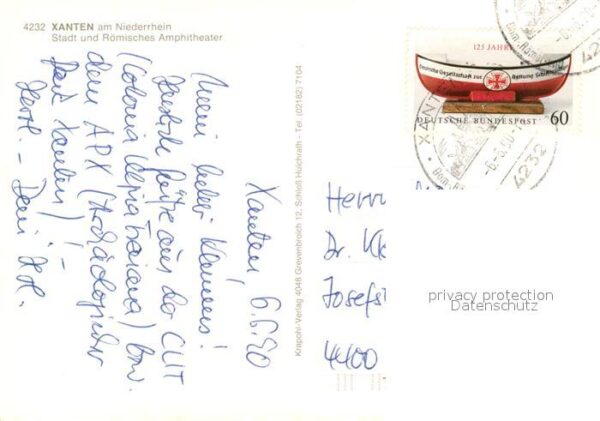 4232 XANTEN am Niederrhein
Stadt und Römisches Amphitheater
Xanten, 6.6.90
Mein lieber Klemens!
Herzliche Grüße aus der CUT
(Colonia Ulpia Traiana) bzw.
dem APX (Archäologischer
Park Xanten)! –
Herzl. – Dein
Krapohl-Verlag 4048 Grevenbroich 12, Schloß Hülchrath - Tel. (02182) 7104
125 JAHRE
Deutsche Gesellschaft zur Rettung Schiffbrüchiger
DEUTSCHE BUNDESPOST
60
XANTEN
4232
4232
Herrn
Dr.
4400
privacy protection
Datenschutz